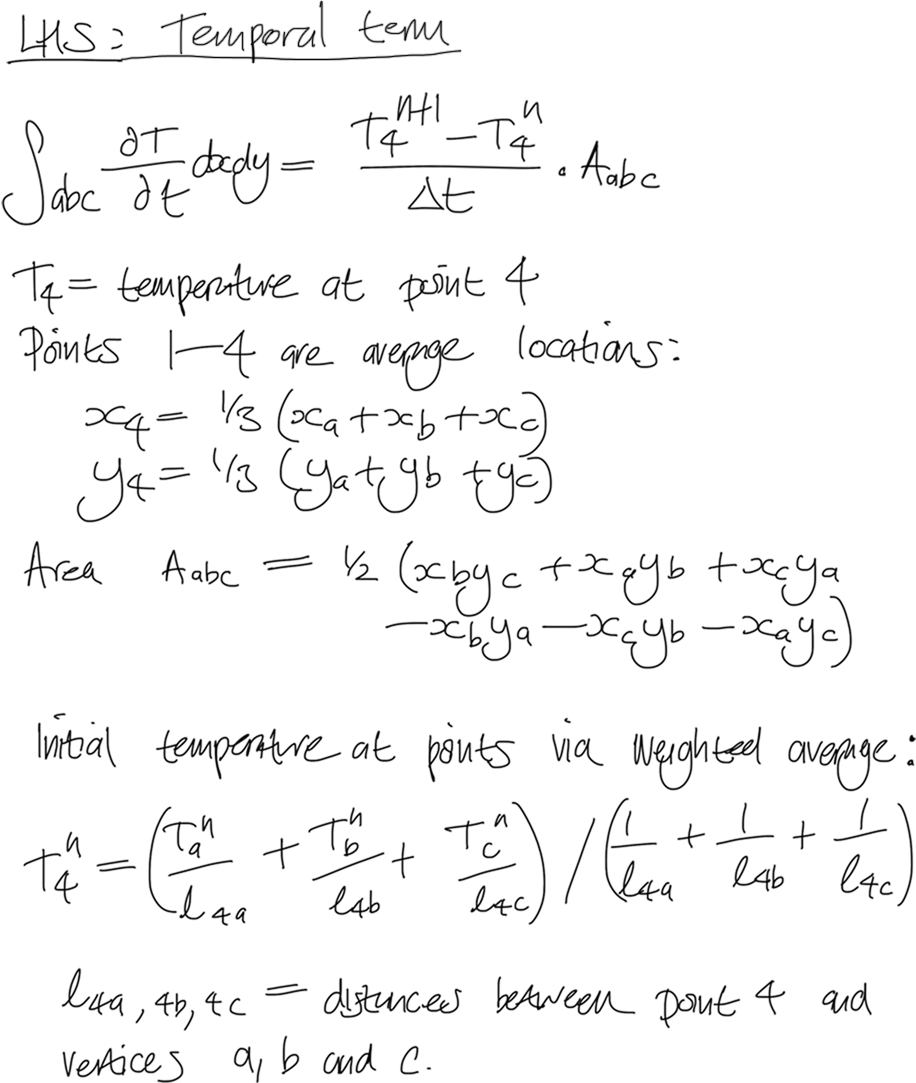 LHS: Temporal term
∫abc ∂T/∂t dxdy = (T₄ⁿ⁺¹ − T₄ⁿ)/Δt · Aabc
T₄ = temperature at point 4
Points 1–4 are average locations:
x₄ = 1/3 (xa + xb + xc)
y₄ = 1/3 (ya + yb + yc)
Area Aabc = 1/2 (xbyc + xayb + xcya
−xbya − xcyb − xayc)
Initial temperature at points via weighted average:
T₄ⁿ = (Taⁿ/l4a + Tbⁿ/l4b + Tcⁿ/l4c) / (1/l4a + 1/l4b + 1/l4c)
l4a, 4b, 4c = distances between point 4 and
vertices a, b and c.